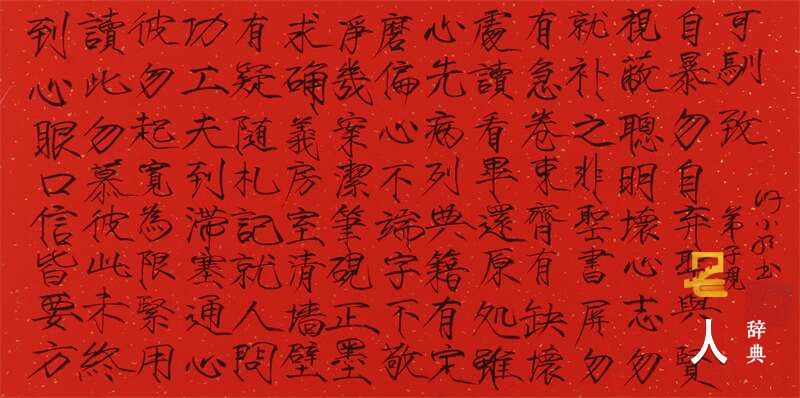 到心眼口信皆要方
讀此勿慕彼此未終
彼勿起寬為限緊用
功工夫到滯塞通心
有疑隨札記就人問
求确義房室清墙壁
淨幾案潔筆硯正墨
磨偏心不端字不敬
心先病列典籍有定
處讀看畢還原处雖
有急卷束齊有缺壞
就补之非聖書屏勿
視蔽聰明壞心志勿
自暴勿自弃聖與賢
可馴致
弟子規
名人
辞典